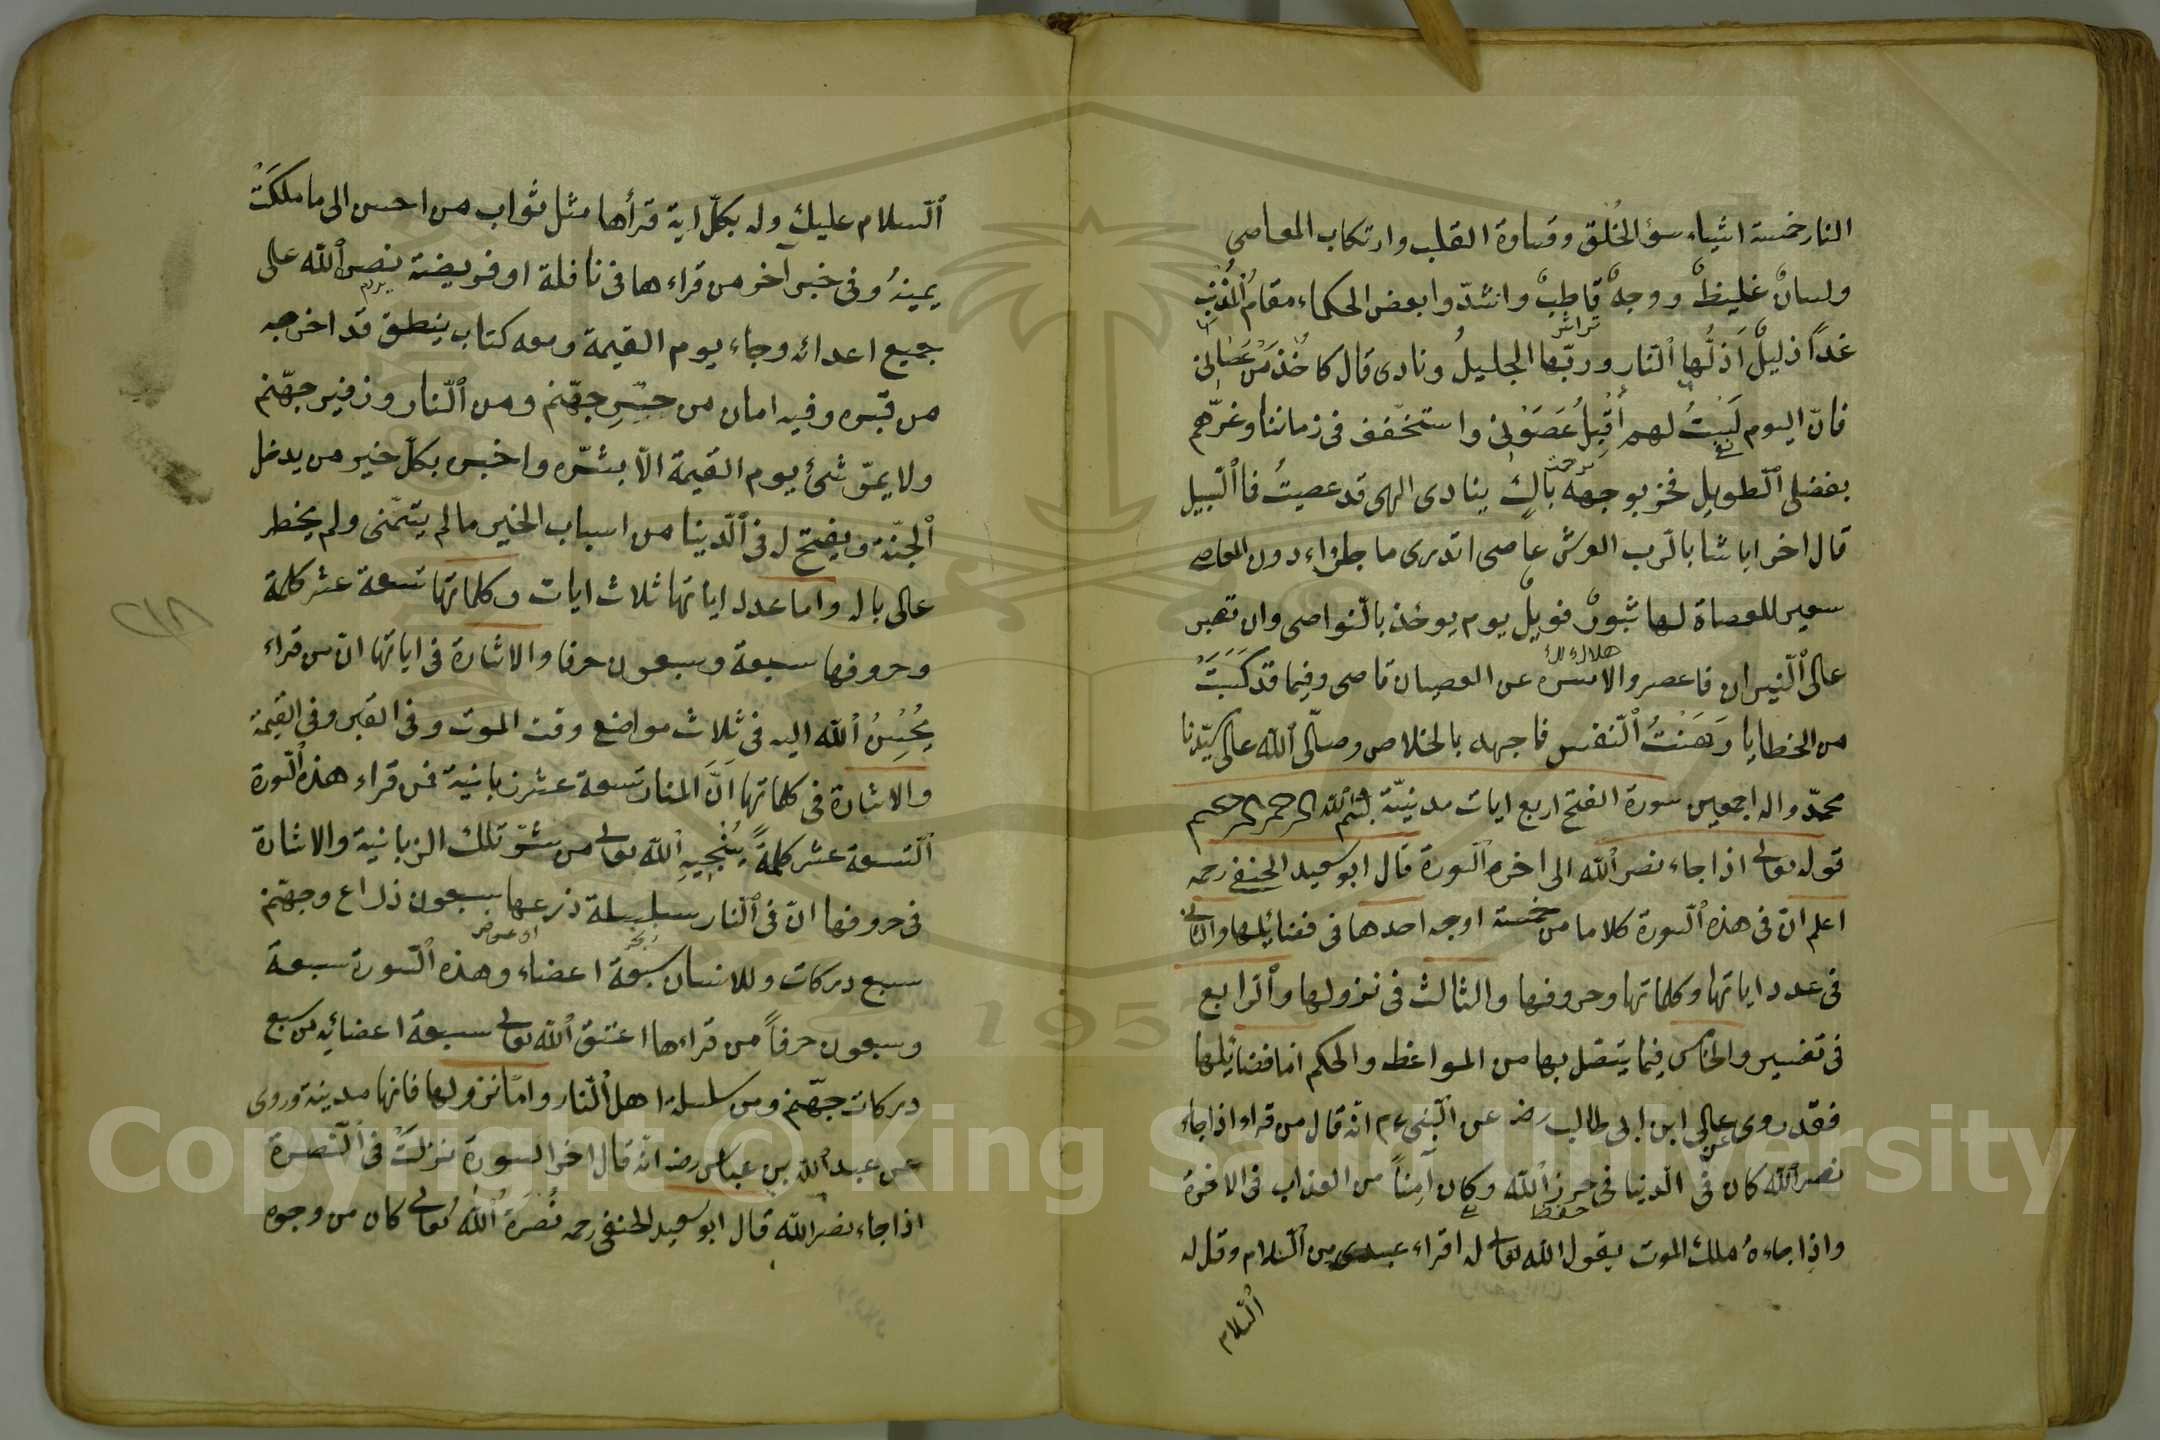 النار خمسة اشياء سؤ الخُلق وقساوة القلب وارتكاب المعاصى
ولسانٌ غليظٌ ووجهٌ قاطبٌ وانشدوا بعض الحكماء مقامُ المُذنِب
غدًا ذليلٌ اذلّها النار وربّها الجليلُ ونادى قال كا خُذ من عصانى
فانّ اليوم لَيْسَتُ لهم أُقيلُ عَصَوْنى واستخفف فى زماننا وغرّهم
بفضلى الطويل فخرّ بوجهه باكٍ ينادى الهى قد عصيتُ فا السّبيل
قال اخر ايا شابا لرب العرش عاصى اتدرى ما جزاء دون المعاصى
سعير للعصاة لها ثبورٌ فويلٌ يوم يوخذ بالنّواصى وان تصبر
هلاك
على النّيران فاعص والا سره عن العصيان قاصى وفيما قد كَسَبَتْ
من الخطايا وَهَنْتُ النّفس فاجهد بالخلاص وصلّى الله على سيّدنا
محمّد واله اجمعين سورة الفتح اربع ايات مدينيّة بسم الله الرحمن الرحيم
قوله تعالى اذا جاء نصر الله الى اخره السورة قال ابو سعيد الحنفى رحمه
اعلم انّ فى هذه السّورة كلاما من خمسة اوجه احدها فى فضائلها والثانى
فى عدد اياتها وكلماتها وحروفها والثالث فى نزولها والرّابع
فى تفسير والخامس فيما يتصل بها من المواعظ والحكم اما فضائلها
فقد روى عن على ابن ابى طالب رضه عن النّبى ءم انّه قال من قراء اذا جاء
نصر الله كان فى الدّنيا فى حرز الله وكان آمِناً من العذاب فى الاخرة
حفظ
واذا جاءهُ ملك الموت يقول الله تعالى له اقراء عبدى من السّلام وقل له
السّلام
السّلام عليك وله بكلّ اية قرأها مثل ثواب من احسن الى ما ملكَتْ
يمينهُ وفى خبر آخر من قراءها فى نافلة او فريضة نصر الله على
جميع اعدائه وجاء يوم القيمة ومعه كتاب ينطق قد اخرجه
من قبره وفيه امان من حسّ جهنّم ومن النّار وزفير جهنّم
ولا يمرّ شئ يوم القيمة الّا بشّره واخبره بكلّ خير من يدخل
الجنّة ويفتح له فى الدّينا من اسباب الخير ما لم يتمنّى ولم يخطر
على باله واما عدد اياتها ثلاث ايات وكلماتها تسعة عشر كلمة
وحروفها سبعة وسبعون حرفا والاشارة فى اياتها انّ من قراء
يُحْسِنُ الله اليه فى ثلاث مواضع وقت الموت وفى القبر وفى القيمة
والاشارة فى كلماتها انّ المنار تسعة عشر زبانية فمن قراء هذه السّورة
التسعة عشر كلمةً يُنْجِيهِ الله تعالى من شرّ تلك الزبانية والاشارة
فى حروفها انّ فى النّار سلسلة ذرعها سبعون ذراع وجهنّم
سبع دركات وللانسان سبعة اعضاء وهذه السّورة سبعة
وسبعون حرفاً من قراءها اعتق الله تعالى سبعة اعضائه من سبع
دركات جهنّم ومن سلسلة اهل النّار وامّا نزولها فانها مدينة وروى
عن عبد الله بن عبّاس رضه انّه قال اخر السورة نزلَتْ فى النّصرة
اذا جاء نصر الله قال ابو سعيد الحنفى رحمه نُصْرَةُ الله تعالى كان من وجوه